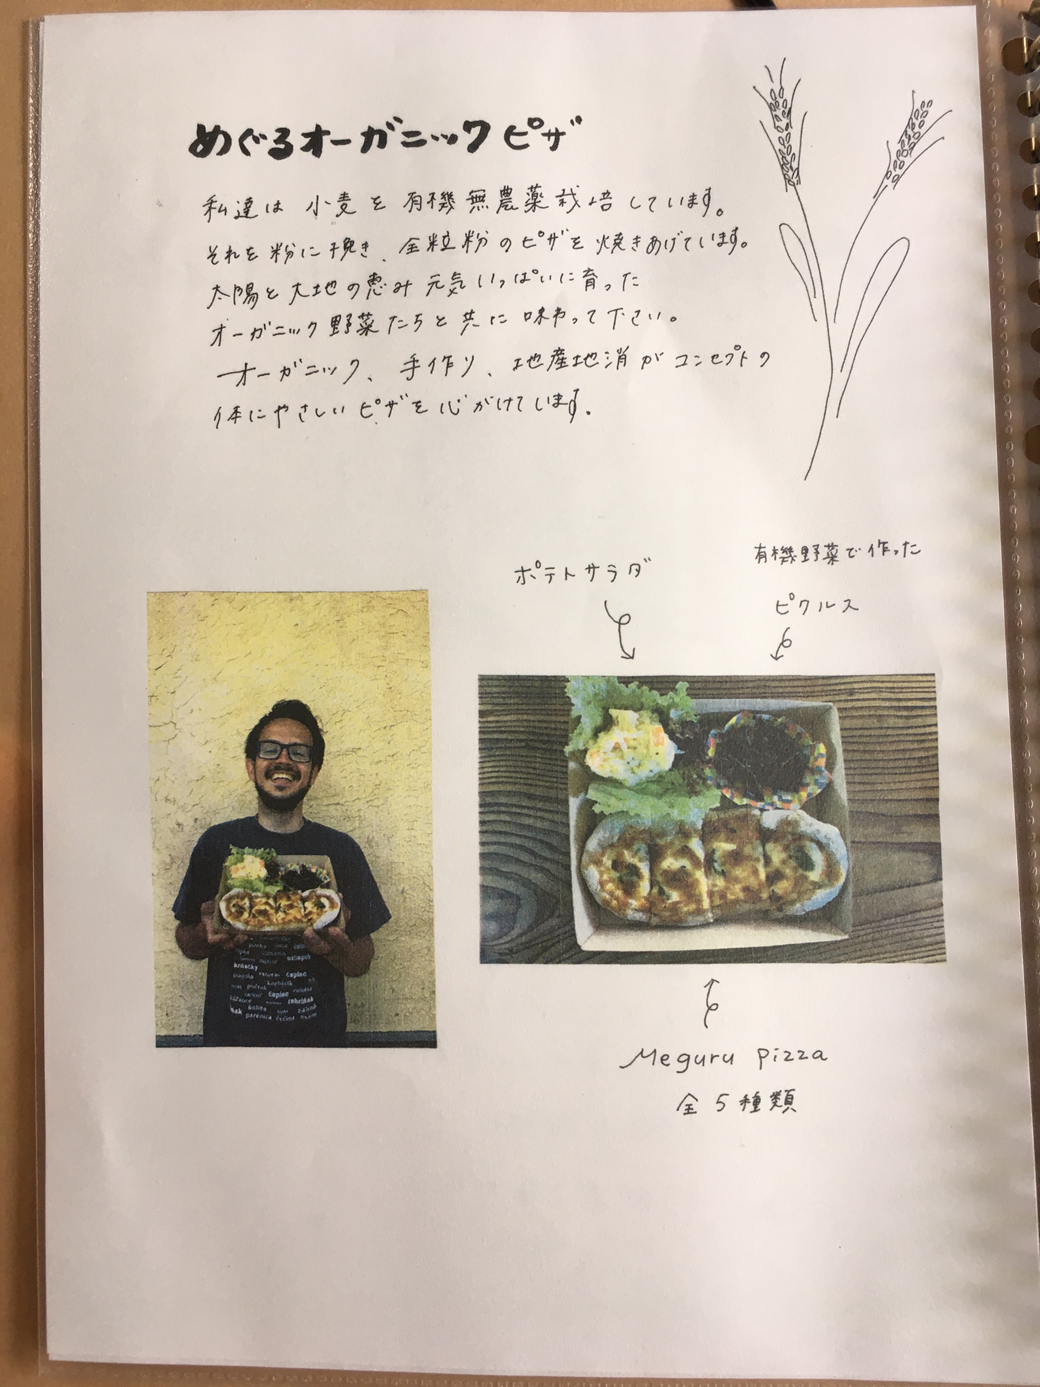 めぐるオーガニックピザ
私達は 小麦を 有機無農薬栽培しています。
それを粉に挽き、全粒粉のピザを焼きあげています。
太陽と大地の恵み元気いっぱいに育った
オーガニック野菜たちと共に味わって下さい。
オーガニック、手作り、地産地消がコンセプトの
体にやさしいピザを心がけています。
ポテトサラダ
有機野菜で作った
ピクルス
Meguru Pizza
全5種類